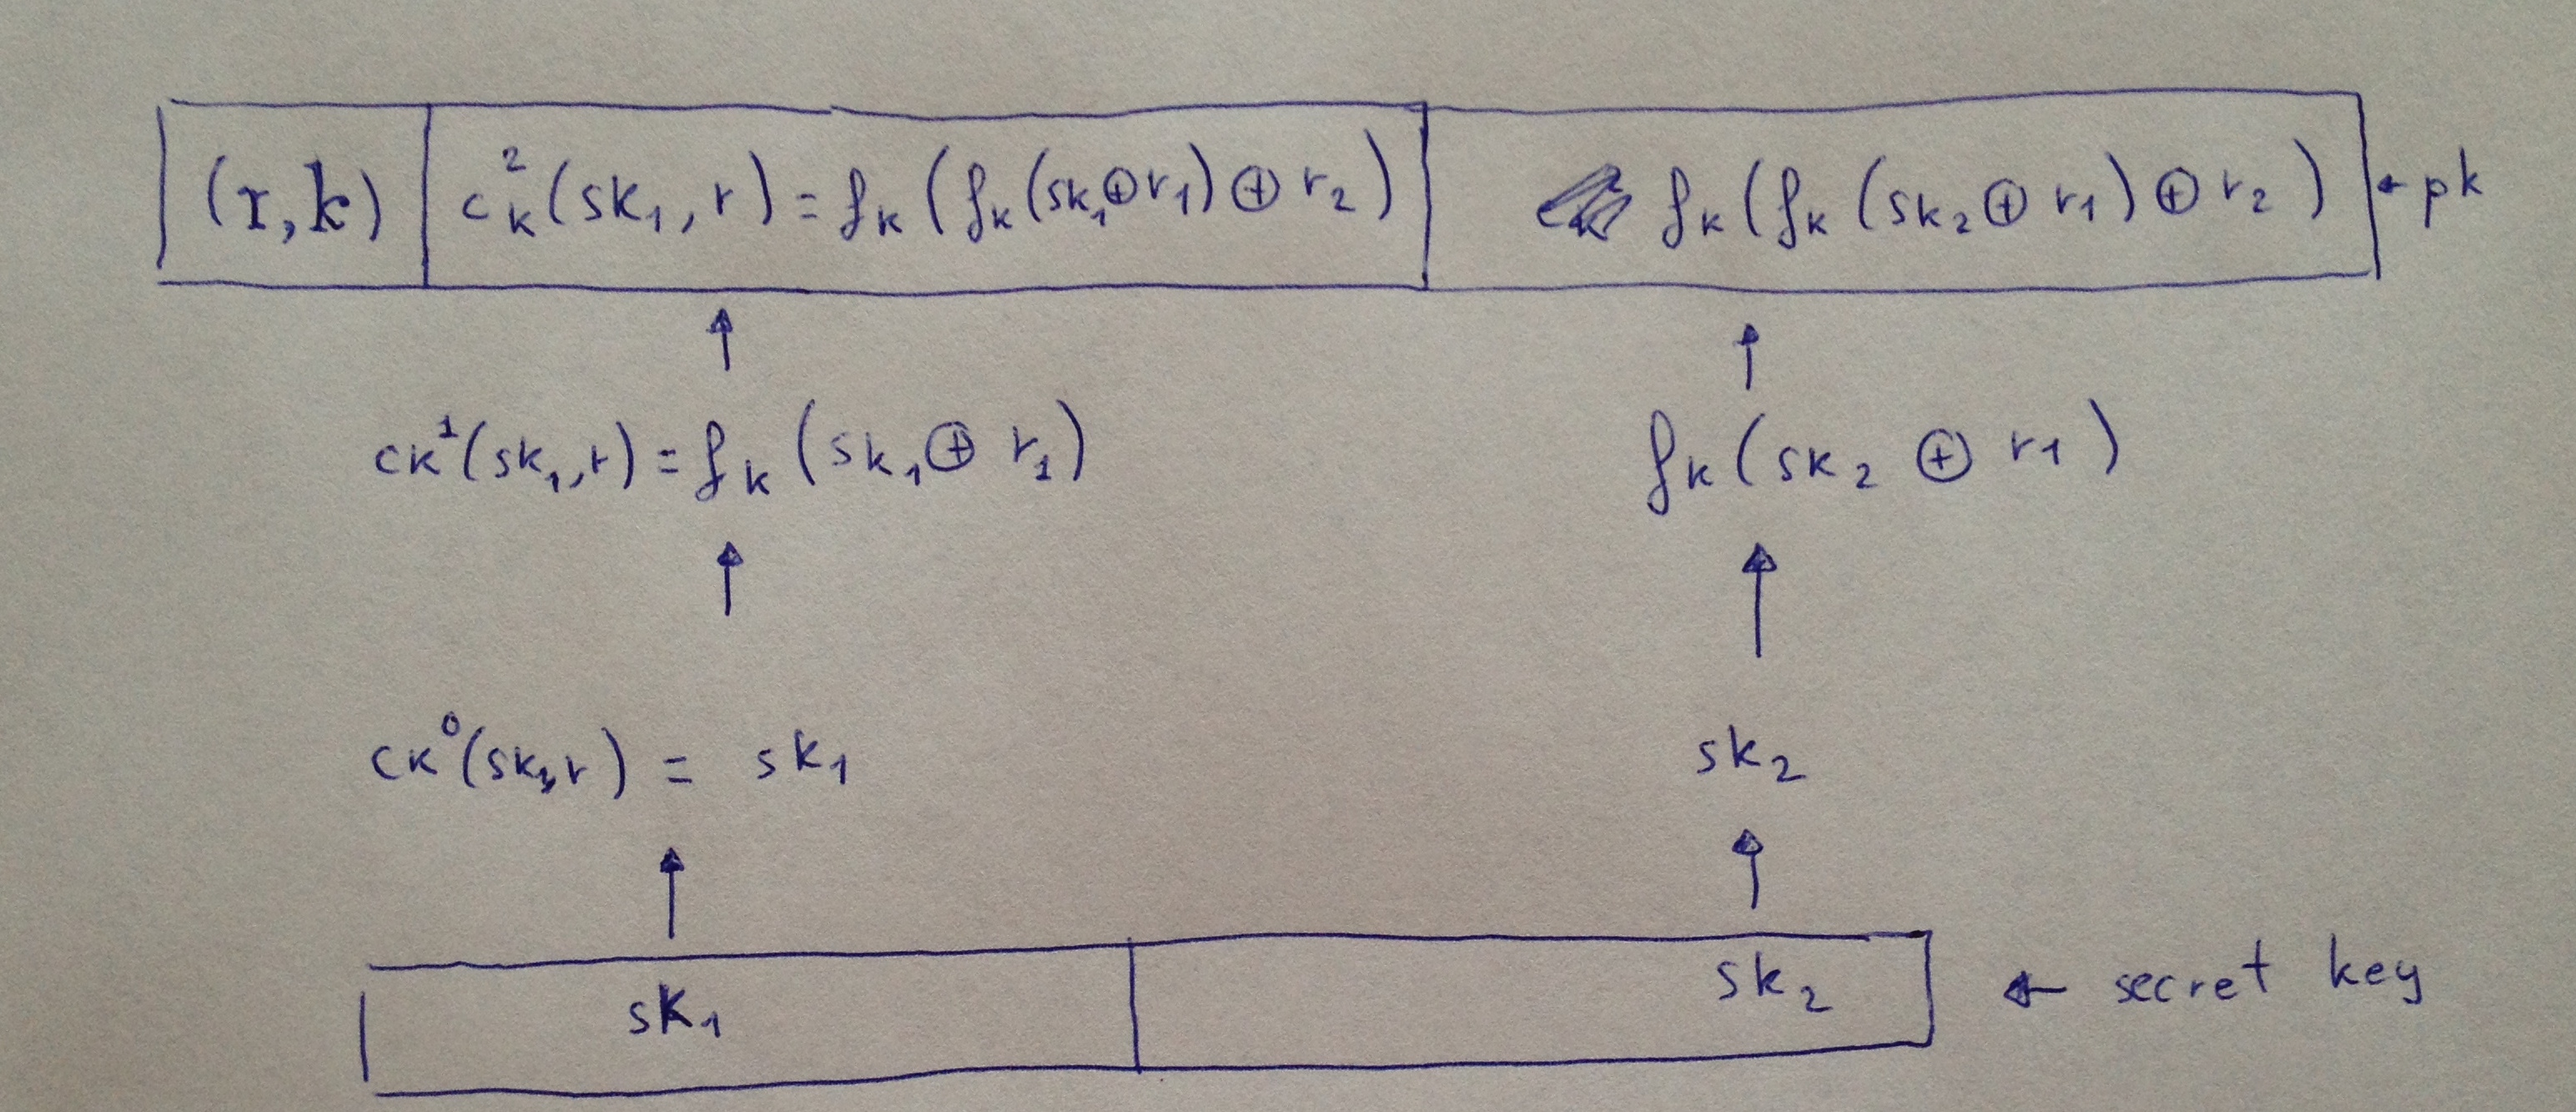 (r, k) c²ₖ(sk₁, r) = fₖ(fₖ(sk₁⊕r₁)⊕r₂) fₖ(fₖ(sk₂⊕r₁)⊕r₂) ← pk
cₖ¹(sk₁, r) = fₖ(sk₁⊕r₁) fₖ(sk₂⊕r₁)
cₖ⁰(sk₁, r) = sk₁ sk₂
sk₁ sk₂ ← secret key